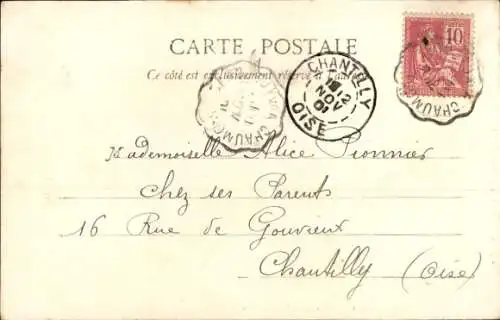 CARTE POSTALE
Ce côté est exclusivement réservé à l'adresse
10
CHANTILLY
12
NOV
01
OISE
CHAUMON
CHAUMON
Mademoiselle Alice Pionnier
Chez ses Parents
16 Rue de Gouvieux
Chantilly (Oise)